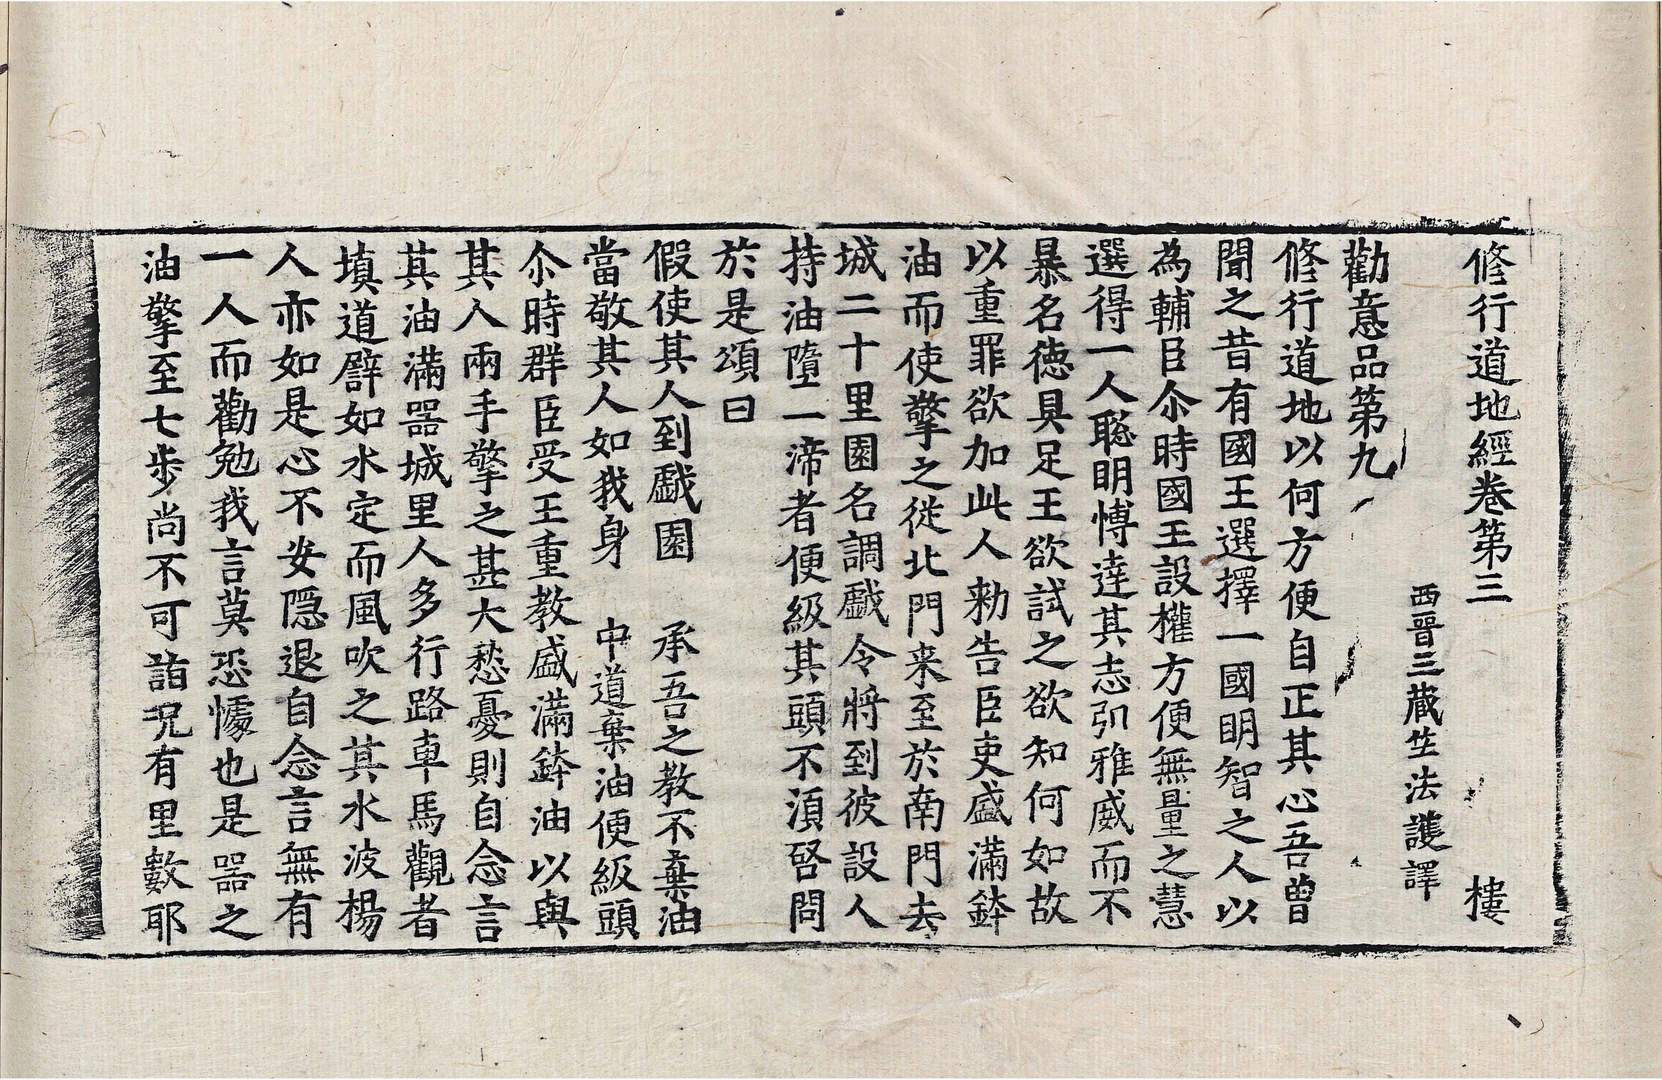 修行道地經卷第三　樓
西晉三藏竺法護譯
勸意品第九
修行道地以何方便自正其心吾曾
聞之昔有國王選擇一國明智之人以
為輔臣尒時國王設權方便無量之慧
選得一人聡明愽達其志弘雅威而不
暴名德具足王欲試之欲知何如故
以重罪欲加此人勑告臣吏盛滿鉢
油而使擎之從北門来至於南門去
城二十里園名調戲令將到彼設人
持油墮一渧者便級其頭不湏啓問
於是頌曰
假使其人到戲園　承吾之教不棄油
當敬其人如我身　中道棄油便級頭
尒時群臣受王重教盛滿鉢油以與
其人兩手擎之甚大愁憂則自念言
其油滿器城里人多行路車馬觀者
填道譬如水定而風吹之其水波楊
人亦如是心不安隱退自念言無有
一人而勸勉我言莫恐懅也是器之
油擎至七步尚不可詣況有里數耶